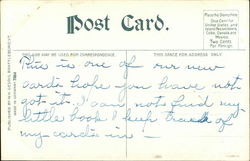 Post Card.
Place the Stamp Here
One Cent for
United States and
Island Possessions,
Cuba, Canada and
Mexico.
Two Cents
For Foreign.
THIS SPACE MAY BE USED FOR CORRESPONDENCE
THIS SPACE FOR ADDRESS ONLY
This is one of our new
cards hope you have not
got it. I can not find my
little book I keep track of
my cards in —